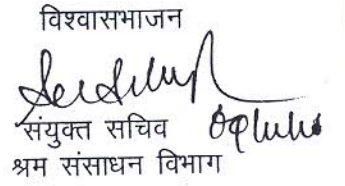 विश्वासभाजन
संयुक्त सचिव
श्रम संसाधन विभाग